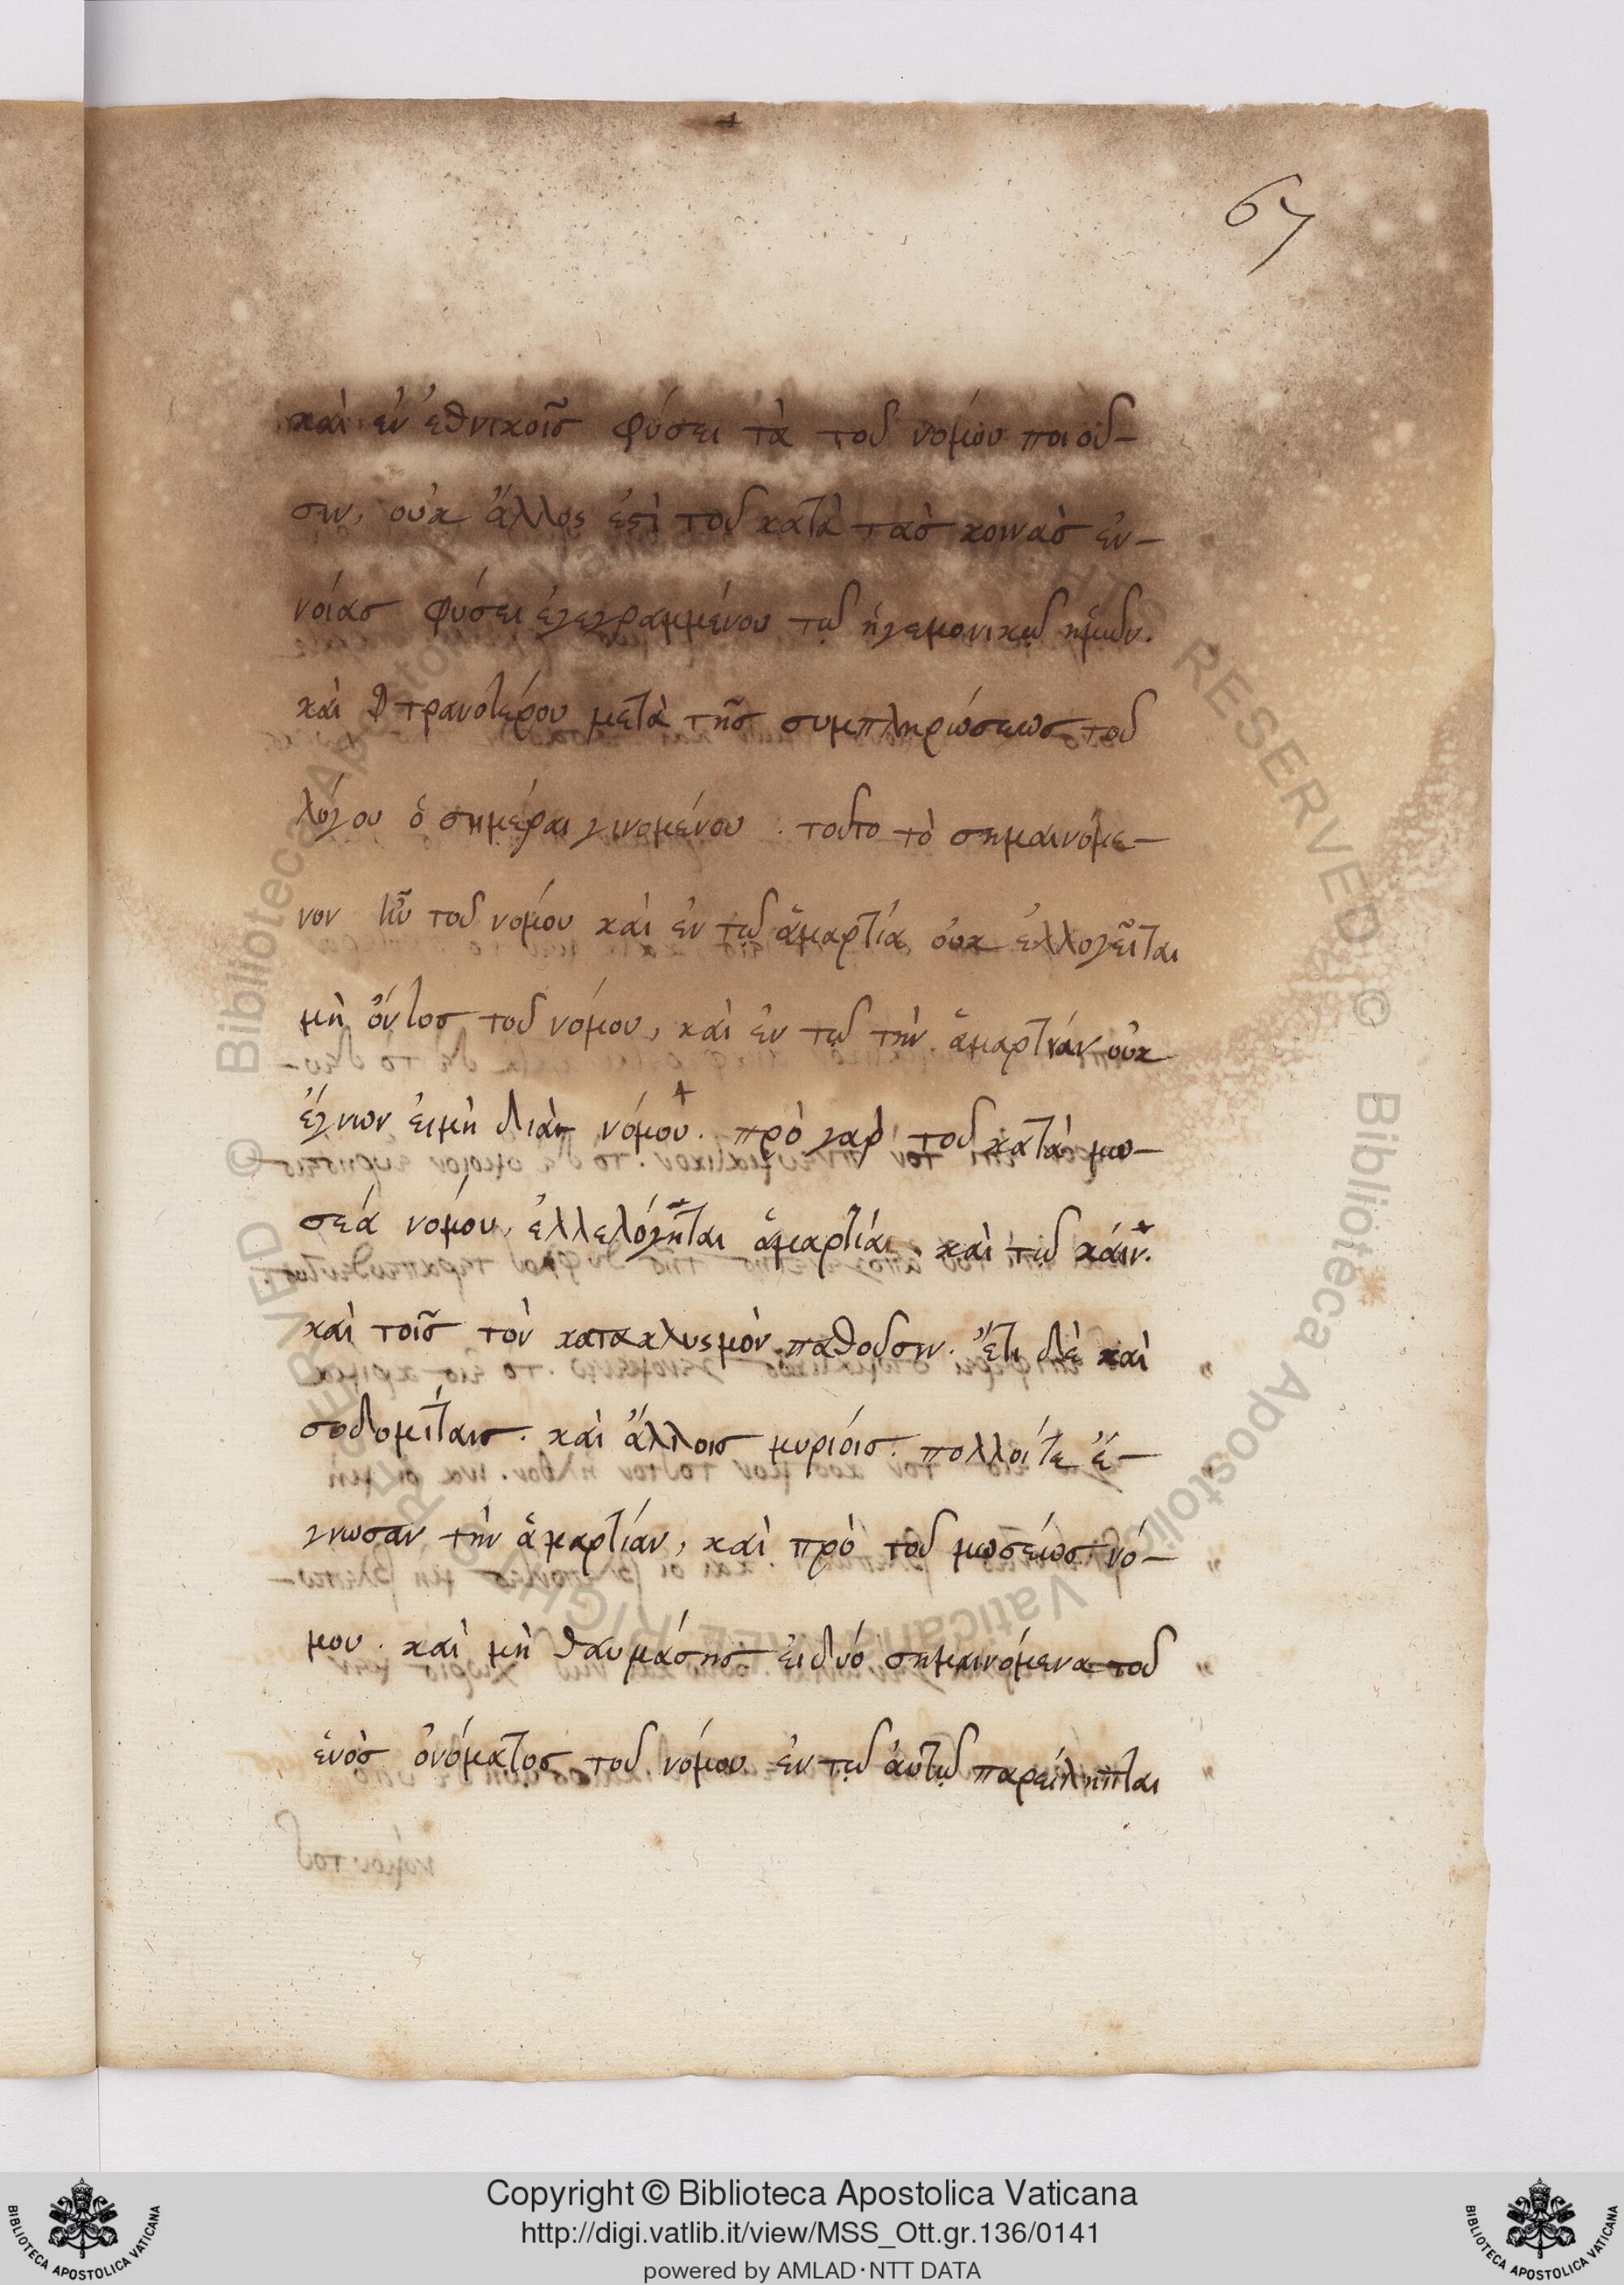 67
καὶ ἐν ἐθνικοῖς φύσει τὰ τοῦ νόμου ποιοῦ-
σιν, οὐκ ἄλλος ἐστὶ τοῦ κατὰ τὰς κοινὰς ἐν-
νοίας φύσει ἐγεγραμμένου τῷ ἡγεμονικῷ ἡμῶν.
καὶ τρανοτέρου μετὰ τῆς συμπληρώσεως τοῦ
λόγου ὁσημέραι γινομένου. τοῦτο τὸ σημαινόμε-
νον ἦν τοῦ νόμου καὶ ἐν τῷ ἁμαρτία οὐκ ἐλλογεῖται
μὴ ὄντος τοῦ νόμου, καὶ ἐν τῷ τὴν ἁμαρτίαν οὐκ
ἔγνων εἰμὴ διὰ νόμου. πρὸ γὰρ τοῦ κατὰ μω-
σέα νόμου, ἐλλελόγηται ἁμαρτίαι. καὶ τῷ κάιν.
καὶ τοῖς τὸν κατακλυσμὸν παθοῦσιν. ἔτι δὲ καὶ
σοδομίταις. καὶ ἄλλοις μυρίοις. πολλοί τε ἔ-
γνωσαν τὴν ἁμαρτίαν, καὶ πρὸ τοῦ μωσέως νό-
μου. καὶ μὴ θαυμάσῃς εἰ δύο σημαινόμενα τοῦ
ἑνὸς ὀνόματος τοῦ νόμου ἐν τῷ αὐτῷ παρείληπται
Copyright © Biblioteca Apostolica Vaticana
http://digi.vatlib.it/view/MSS_Ott.gr.136/0141
powered by AMLAD·NTT DATA